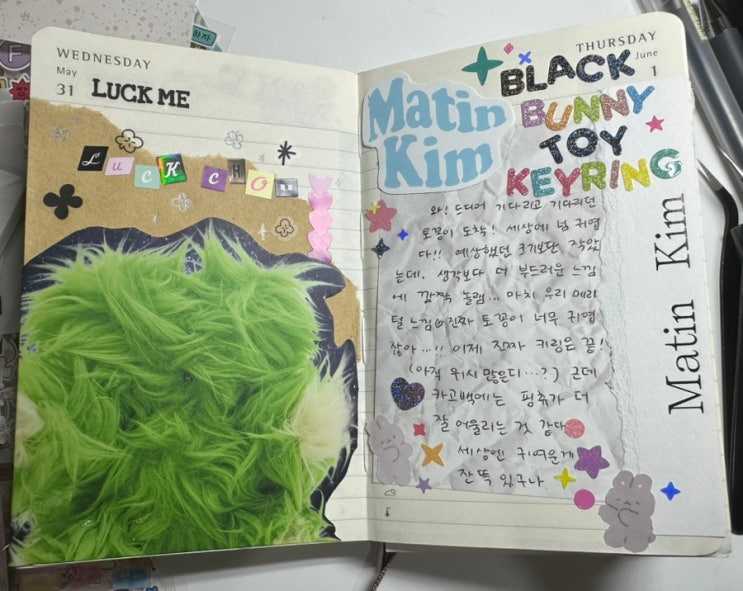 WEDNESDAY
May
31
LUCK ME
LUCK COU
THURSDAY
June
1
Matin
Kim
BLACK
BUNNY
TOY
KEYRING
와! 드디어 기다리고 기다리던
토끼이 도착! 세상에 넘 귀엽
다!! 예상했던 크기보단 작았
는데, 생각보다 더 부드러운 느낌
에 깜짝 놀램... 마치 우리 메리
털 느낌 진짜 토끼이 너무 귀엽
잖아...!! 이제 진짜 키링은 끝!
(아직 위시 많은디...?) 근데
카고백에는 핑쮸가 더
잘 어울리는 것 같다
세상엔 귀여운게
잔뜩 있구나
Matin Kim
하자
F